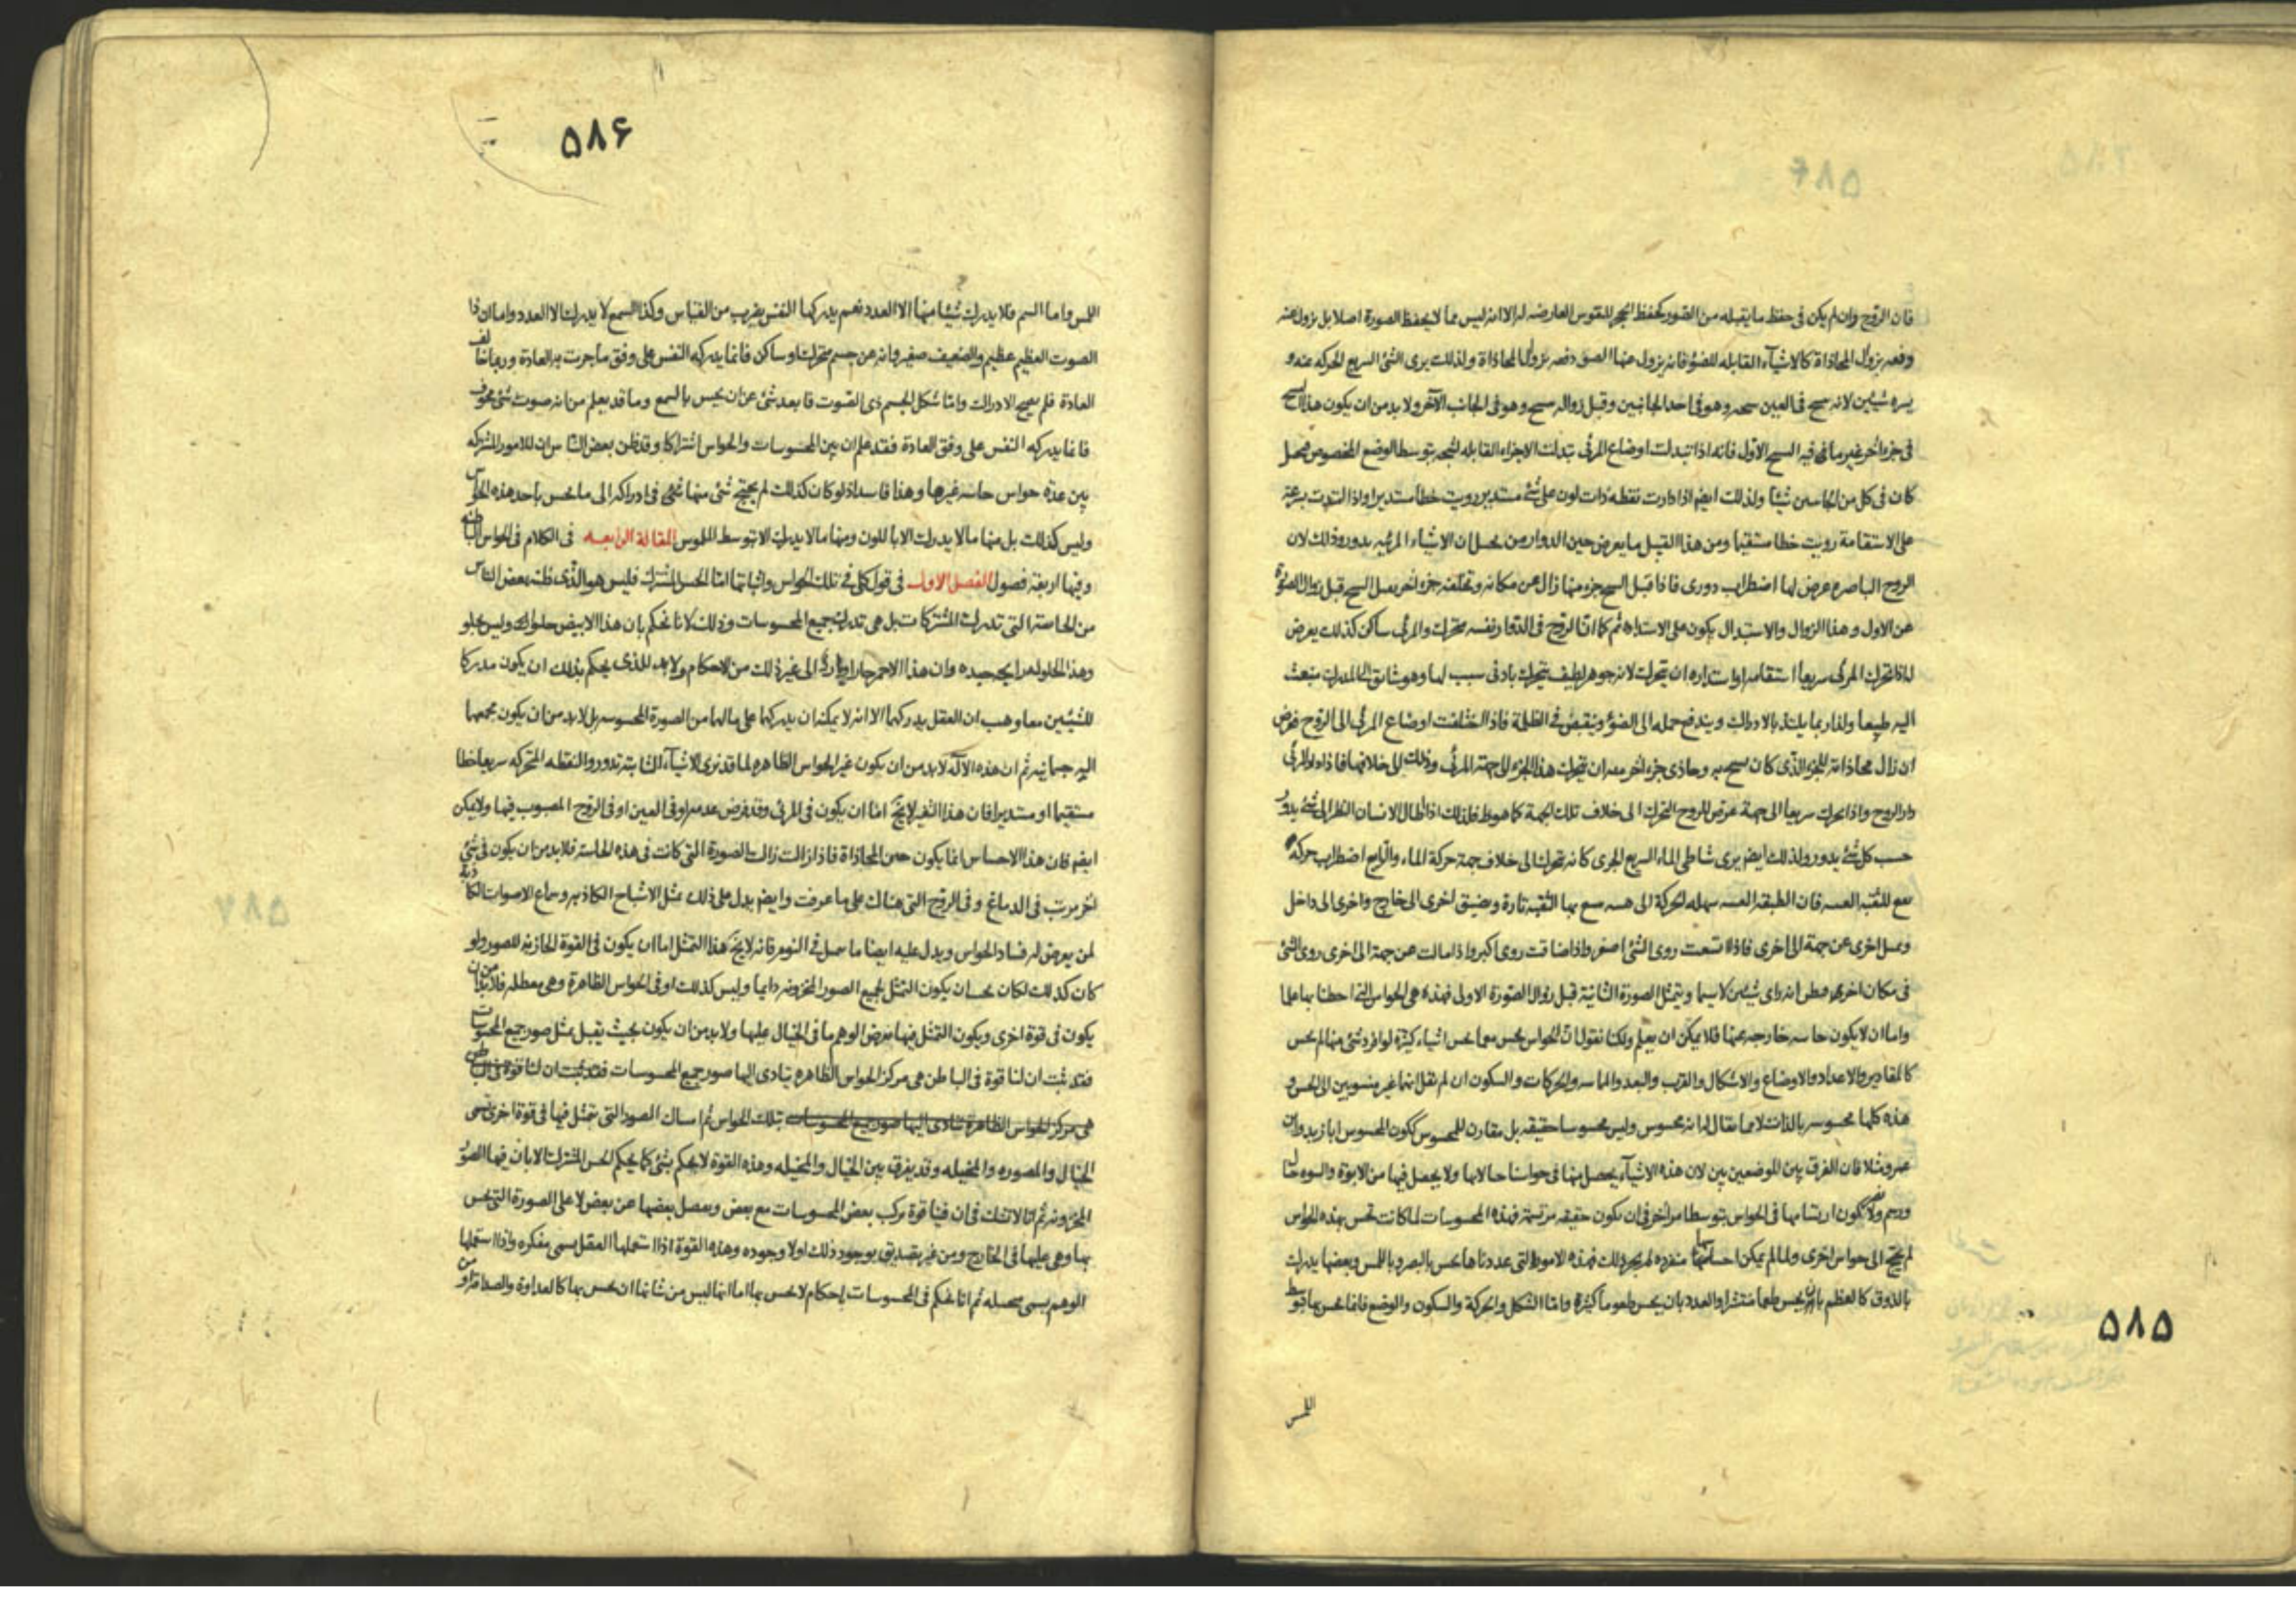 فان الروح وان لم يكن فى حفظ ما يقبله من الصور كحفظ الحجر للنقوس العارضه له الا انه ليس مما لا يحفظ الصورة اصلا بل يزول عنه
دفعه بزوال المحاذاة كالاشيآء القابله للضوء فانه يزول عنها الضوء دفعه بزوال المحاذاة ولذلك يرى الشئ السريع الحركه عنه و
يسره شيئين لانه وهو فى احد الجانبين وقبل زواله وهو فى الجانب الآخر ولا بد من ان يكون هذا الشبح
فى جزء اخر غير ما فيه الشبح الاول فانه اذا تبدلت اوضاع المرئى تبدلت الاجزاء القابله لشبحه بتوسط الوضع المخصوص
كان فى كل من شيئا ولذلك ايضم اذا دارت نقطه ذات لون على شئ مستدير رويت خطا مستديرا واذا امتدت بسرعة
على الاستقامة رويت خطا مستقيما ومن هذا القبيل ما يعرض حين الدوار من الاشيآء المرئيه بدور وذلك لان
الروح الباصره عرض لها اضطراب دورى فاذا قبل الشبح جزء منها زال عن مكانه وتخلفه جزء اخر الشبح قبل زوال الصورة
عن الاول وهذا الزوال والاستبدال يكون على الاستداره ثم كما ان الروح فى الدوار نفسه متحرك والمرئى ساكن كذلك يعرض
اذا تحرك المرئى سريعا استقامه او استداره ان يتحرك لانه جوهر لطيف يتحرك بادنى سبب لها وهو شائق الى المدرك منبعث
اليه طبيعا ولذا ربما يلتذ بالادراك ويندفع حمله الى الضوء وينقبض فى الظلمة فاذا اختلفت اوضاع المرئى الى الروح فرض
ان زال محاذاته للجزء الذى كان به وحاذى جزء اخر ان يتحرك هذا الجزء الى جهة المرئى وذلك الى خلافها فاذا دار المرئى
دار الروح واذا تحرك سريعا الى جهة عرض للروح التحرك الى خلاف تلك الجهة كما هو ط فلذلك اذا اطال الانسان النظر الى شئ يدور
حسب كل شئ يدور ولذلك ايضم يرى شاطى الماء السريع الجرى كانه تحرك الى خلاف جهة حركة الماء والرابع اضطراب حركه
للثقبه العنبيه فان الطبقه العنبيه سهله الحركة الى بها الثقبه تارة ويضيق اخرى الى خارج واخرى الى داخل
اخرى عن جهة الى اخرى فاذا اتسعت روى الشئ اصغر واذا ضاقت روى اكبر واذا مالت عن جهة الى اخرى روى الشئ
فى مكان اخر انه راى شيئين لا سيما ويتمثل الصورة الثانية قبل زوال الصورة الاولى فهذه هى الحواس التى احطنا بها علما
واما ان لا يكون حاسه خارجه عنها فلا يمكن ان يعلم ولكنا نقول ان الحواس يحس معما يحس اشياء كثيرة لو افرد شئ منها لم يحس
كالمقادير والاعداد والاوضاع والاشكال والقرب والبعد والماسه والحركات والسكون ان لم نقل انها غير منسوبين الى الحس و
هذه كلها محسوسه بالذات لا بما يقال له انه محسوس وليس محسوسا حقيقه بل مقارن للمحسوس ككون المحسوس ابا زيد وابن
عمرو مثلا فان الفرق بين الموضعين بين لان هذه الاشيآء يحصل بها فى حواسنا حالا بها ولا يحصل فيها من الابوة والبنوه حال
ورسم ولا يضر كون ارتسامها فى الحواس بتوسط امر اخر فى ان يكون حقيقه مرتسمة فهذه المحسوسات لما كانت تحس بهذه الحواس
لم يحتج الى حواس اخرى ولما لم يمكن احساسها منفرده لم يجز ذلك فهذه الامور التى عددناها يحس بالبصر و باللمس وبعضها يدرك
بالذوق كالعظم بان يحس طعما منتشرا والعدد بان يحس طعوما كثيرة واما الشكل والحركة والسكون والوضع فانما يحس بها بتوسط
اللمس
۵۸۵
۵۸۶
اللمس واما الشم فلا يدرك شيئا منها الا العدد نعم يدركها النفس بضرب من القياس وكذا السمع لا يدرك الا العدد واما ان ذا
الصوت العظيم عظيم والضعيف صغير وانه عن جسم متحرك او ساكن فانما يدركه النفس على وفق ما جرت به العادة وربما خالف
العادة فلم يصح الادراك واما شكل الجسم ذى الصوت فابعد شئ عن ان يحس بالسمع وما قد يعلم من انه صوت شئ مجوف
فانما يدركه النفس على وفق العادة فقد علم ان بين المحسوسات والحواس اشتراكا وقد ظن بعض الناس ان للامور المشتركه
بين عده حواس حاسه غيرها وهذا فاسد اذ لو كان كذلك لم يحتج شئ منها فى ادراكه الى ما يحس باحد هذه الحواس
وليس كذلك بل منها ما لا يدرك الا باللون ومنها ما لا يدرك الا بتوسط الملموس المقالة الرابعه فى الكلام فى الحواس الباطنه
وفيها اربعة فصول الفصل الاول فى قول كلى فى تلك الحواس واثباتها اما الحس المشترك فليس هو الذى ظنه بعض الناس
من الحاسة التى تدرك المشتركات بل هى تدرك جميع المحسوسات وذلك لانا نحكم بان هذا الابيض حلو او وليس بحلو
وهذا الحلو له رايحه جيده وان هذا الاحمر حار او بارد الى غير ذلك من الاحكام ولا بد للذى يحكم بذلك ان يكون مدركا
للشيئين معا وهب ان العقل يدركهما الا انه لا يمكنه ان يدركها على مالها من الصورة المحسوسه بل لا بد من ان يكون مجمعهما
اليه جسمانيه ثم ان هذه الآلة لا بد من ان يكون غير الحواس الظاهره لما قد نرى الاشيآء الثابته تدور والنقطه المتحركه سريعا خطا
مستقيما او مستديرا فان هذا التغير لا يخ اما ان يكون فى المرئى وقد فرض عدمه او فى العين او فى الروح المصبوب فيها ولا يمكن
ايضم فان هذا الاحساس انما يكون حين المحاذاة فاذا زالت زالت الصورة التى كانت فى هذه الحاسة فلا بد من ان يكون فى شئ
اخر مرتب فى الدماغ وفى الروح التى هناك على ما عرفت وايضم يدل على ذلك تمثل الاشباح الكاذبه وسماع الاصوات الكاذبة
لمن يعرض له فساد الحواس ويدل عليه ايضا ما فى النوم فانه لا يخ هذا التمثل اما ان يكون فى القوة الخازنه للصور ولو
كان كذلك لكان يكون التمثل لجميع الصور المخزونه دايما وليس كذلك او فى الحواس الظاهرة وهى معطله فلا بد من ان
يكون فى قوة اخرى ويكون التمثل فيها بعرض الوهم ما فى الخيال عليها ولا بد من ان يكون بحيث يقبل تمثل صور جميع المحسوسات
فقد ثبت ان لنا قوة فى الباطن هى مركز الحواس الظاهره يتادى اليها صور جميع المحسوسات فقد ثبت ان لنا قوة فى الباطن
هى مركز للحواس الظاهرة يتادى اليها صور جميع المحسوسات بتلك الحواس ثم امساك الصور التى يتمثل فيها فى قوة اخرى تسمى
الخيال والمصوره والمتخيله وقد يفرق بين الخيال والمتخيله وهذه القوة لا يحكم بشئ كما يحكم الحس المشترك الا بان فيها الصور
المخزونه ثم انا لا نشك فى ان فينا قوة يركب بعض المحسوسات مع بعض ويفصل بعضها عن بعض لا على الصورة التى يحس
بها وهى عليها فى الخارج ومن غير تصديق بوجود ذلك او لا وجوده وهذه القوة اذا استعملها العقل يسمى مفكره واذا استعملها
الوهم يسمى متخيله ثم انا نحكم فى المحسوسات باحكام لا نحس بها اما انها ليس من شانها ان يحس بها كالعداوة والصداقة او من